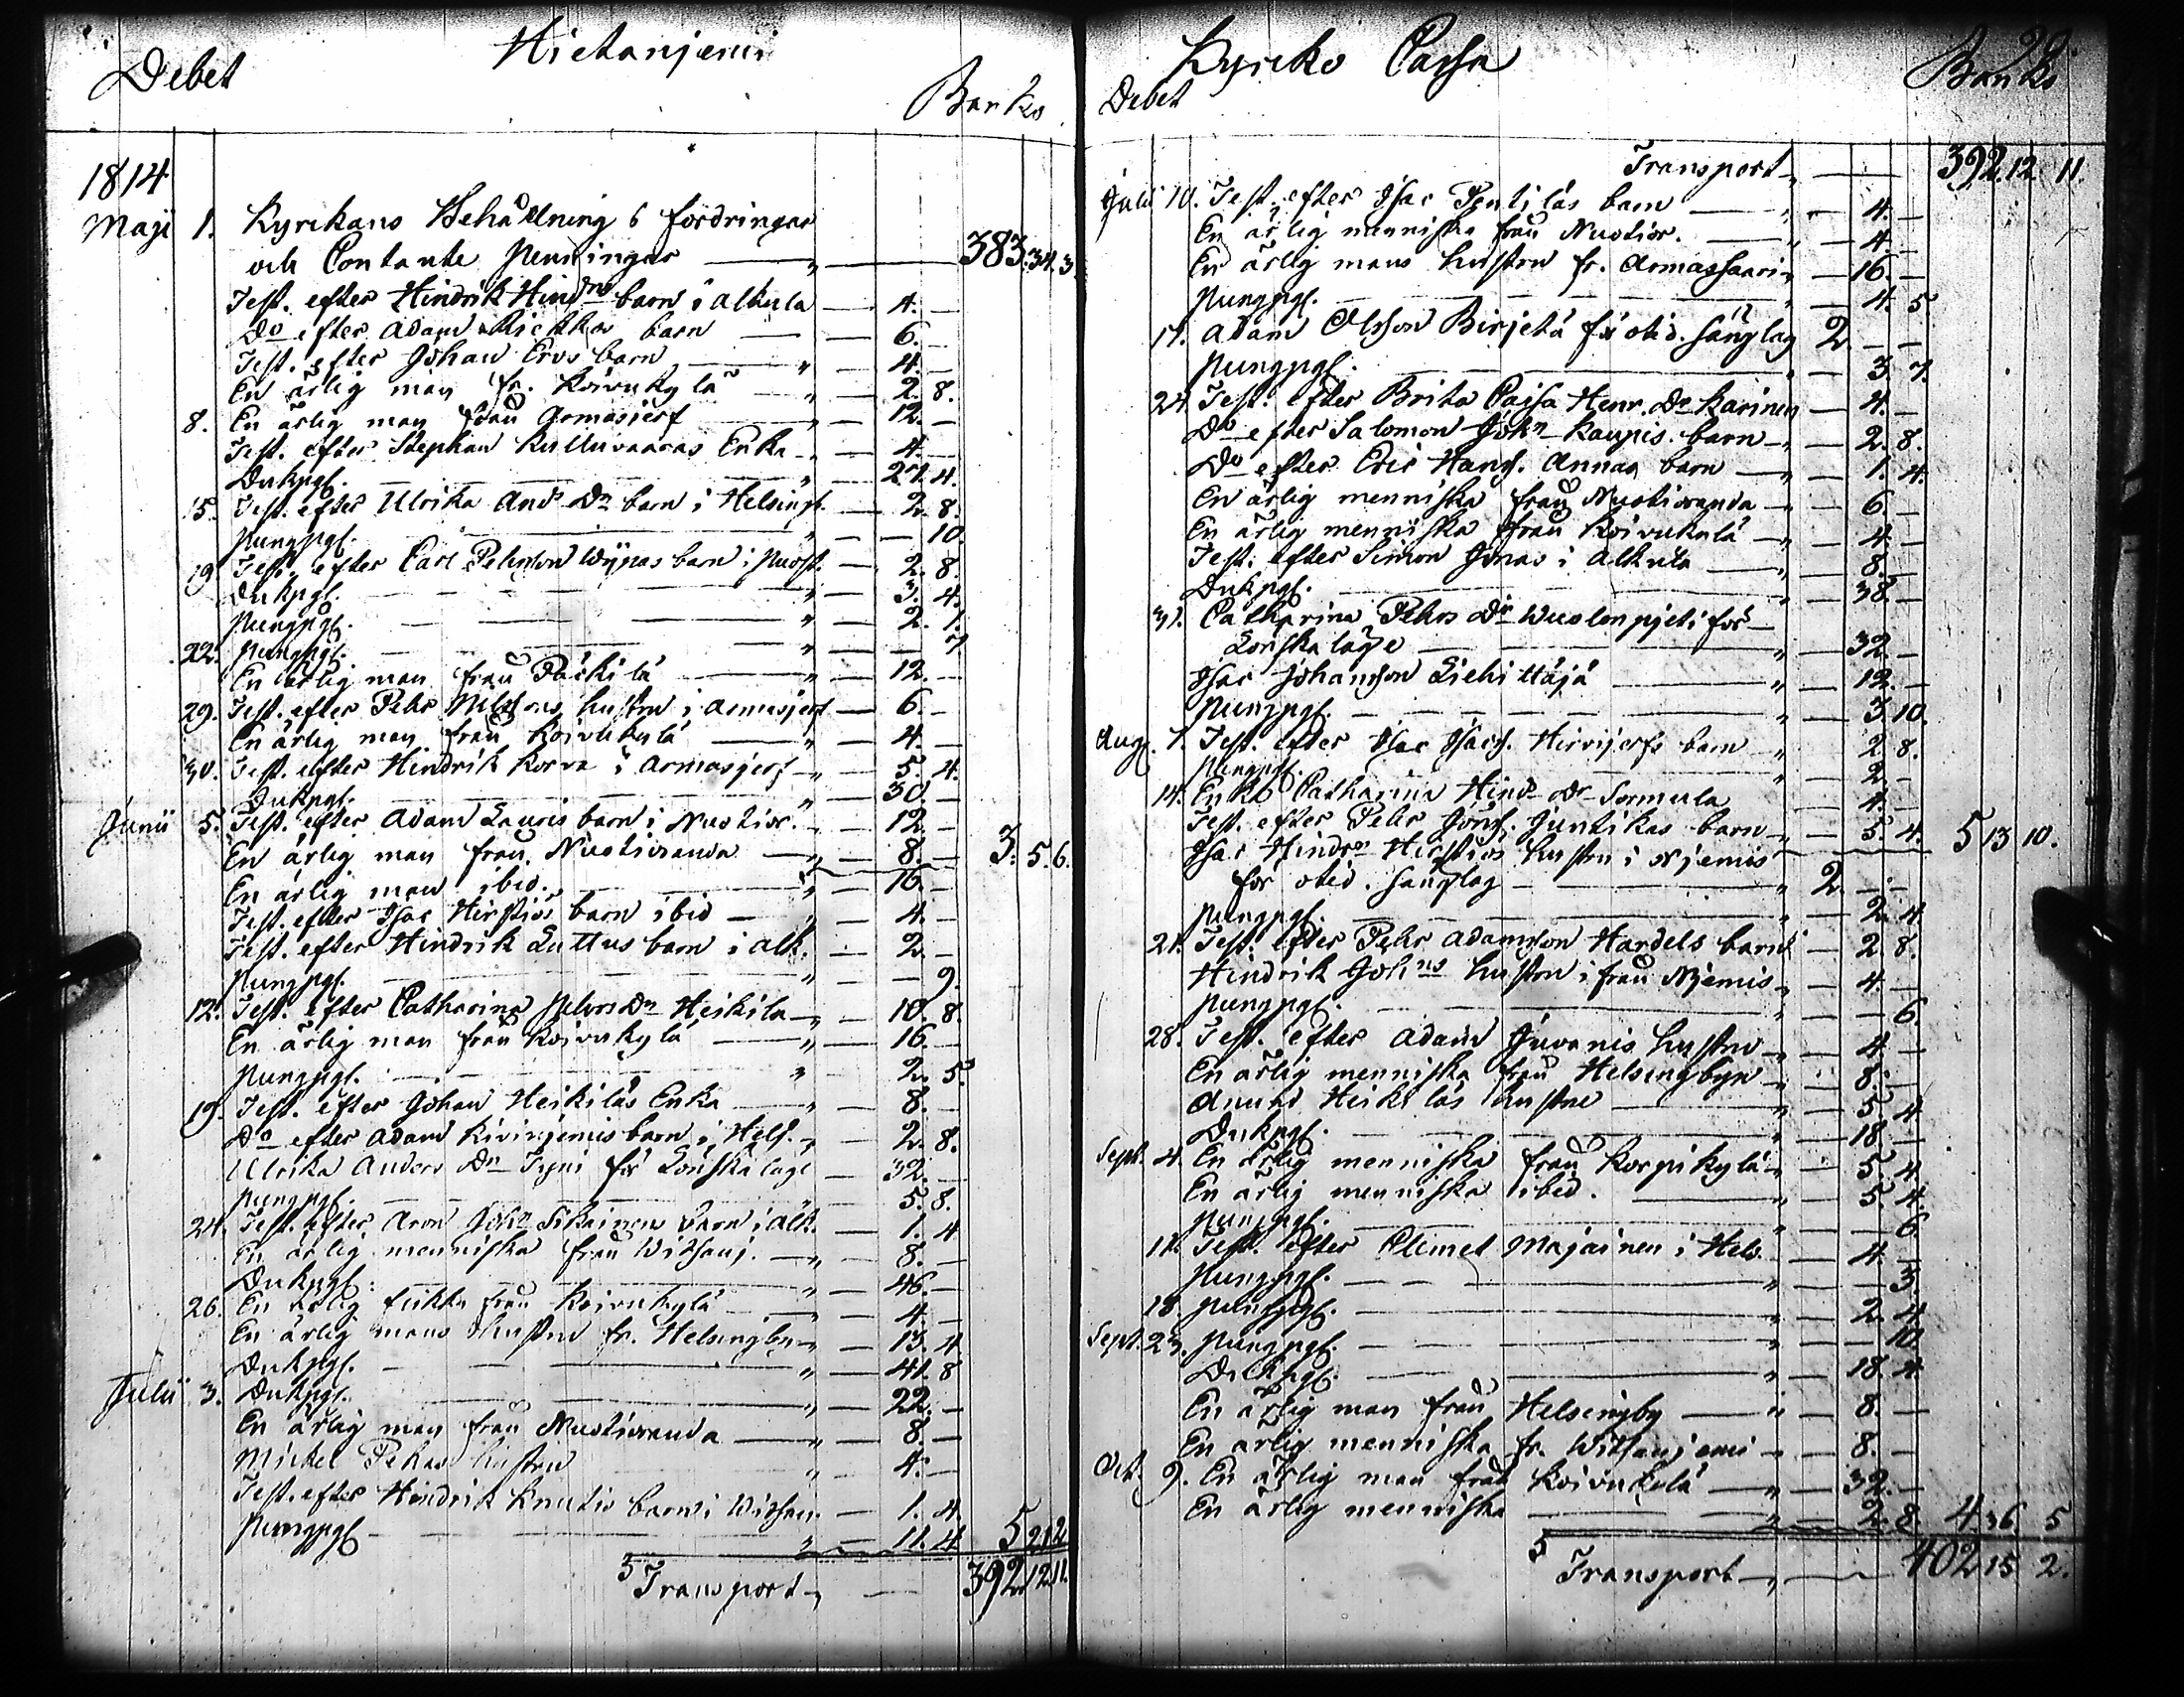 Debet Hietaniemi Banko
1814
Maji 1. Kyrkans Behållning i fordringar
och Contante Penningar — 383. 34. 3
Test. efter Hindrik Hindrs barn i Alkula — 4. —
Do efter Adam Riekkos barn — 6. —
Test. efter Johan Eros barn — 4. —
En ärlig man fr. Koivukylä — 2. 8.
8. En ärlig man från Armasjerf — 12. —
Test. efter Stephan Kulluvaaras Enka — 4. —
Dukpgr. — 27. 4.
15. Test. efter Ulrika And. Dr barn i Helsingb. — 2. 8.
Pungpgr. — 10
19 Test. efter Carl Pehrsson Wypas barn i — 2. 8.
Dukpgr. — 3. 4.
Pungpgr. — 2. 1.
22. Pungpgr. — 7
En ärlig man från Päkkilä — 12. —
29. Test. efter Pehr Nilssons hustru i Armasjerf — 6. —
En ärlig man från Koivukylä — 4. —
30. Test. efter Hindrik Korva i Armasjerf — 5. 4.
Dukpgr. — 30. —
Junii 5. Test. efter Adam Lauris barn i Nuotior. — 12. —
En ärlig man från Nuotioranda — 8. — 3. 5. 6.
En ärlig man ibid. — 16. —
Test. efter Isac Hirstiös barn ibid — 4. —
Test. efter Hindrik Luttus barn i Alk. — 2. —
Pungpgr. — 9.
12. Test. efter Catharina Pehrs Dr Heikilä — 10. 8.
En ärlig man från Koivukylä — 16. —
Pungpgr. — 2. 5.
19. Test. efter Johan Heikiläs Enka — 8. —
Do efter Adam Kiviniemis barn i Hels. — 2. 8.
Ulrika Anders Dr Tyni för Lönskaläge — 32. —
Pungpgr. — 5. 8.
24. Test. efter Aron Johns Sikainen barn i Alk. — 1. 4
En ärlig menniska från Witsanj. — 8. —
Dukpgr. — 46. —
26. En ärlig flikka från Koivukylä — 4. —
En ärlig mans hustru fr. Helsingby — 13. 4
Dukpgr. — 41. 8
Julii 3. Dukpgr. — 22. —
En ärlig man från Nuotioranda — 8. —
Michel Pekas hustru — 4. —
Test. efter Hindrik Knutis barn i Witsan. — 1. 4
Pungpgr — 11. 4 5 21 2
Transport — 392. 12. 11.
Kyrko Cassa 20.
Debet Banko
Transport — 392. 12 11.
Julii 10. Test. efter Isac Pentiläs barn — 4. —
En ärlig menniska från Nuotior. — 4. —
En ärlig mans hustru fr. Armassaari — 16. —
Pungpgr. — 4. 5
17. Adam Olsson Birjetä för otid. sänglag 2. — —
Pungpgr. — 3 7.
24. Test. efter Brita Cajsa Henr. Dr Karinen — 4. —
Do efter Salomon Johns Kaupis barn — 2. 8.
Do efter Eric Hans. Annas barn — 1. 4.
En ärlig menniska från Nuotioranda — 6. —
En ärlig menniska från Koivukylä — 4. —
Test. efter Simon Jonas i Alkula — 8. —
Dukpgr. — 38. —
31. Catharina Pehrs Dr för
Lönskaläge — 32. —
Isac Johansson Liehittäjä — 12. —
Pungpgr. — 3 10.
Aug. 7. Test. efter Isac Isacs. Hirvijerfs barn — 2 8.
Pungpgr. — 2. —
14. Enka Catharina Hind. Dr — 4. —
Test. efter Pehr Jöns. Juntikas barn — 5. 4. 5 13 10.
Isac Hindrs Hirstiös hustru i Niemis
för otid. sänglag — 2. — —
Pungpgr. — 2. 4
21. Test. efter Pehr Adamsson Hardels barn — 2. 8.
Hindrik Johns hustru i från Niemis — 4. —
Pungpgr. — 6.
28. Test. efter Adam Juvanis hustru — 4. —
En ärlig menniska från Helsingbyn — 8. —
Anund Heikiläs hustru — 5. 4
Dukpgr. — 18. —
Sept. 4. En ärlig menniska från Korpikylä — 5. 4
En ärlig menniska ibid. — 5. 4
Pungpgr. — 6.
11. Test. efter Clemet Majainen i Hels. — 4. —
Pungpgr. — 3.
18. Pungpgr. — 2. 4
Sept. 25. Pungpgr. — 10.
Dukpgr. — 18. 4
En ärlig man från Helsingby — 8. —
En ärlig menniska fr. Witsaniemi — 8. —
Oct. 9. En ärlig man från Koivukylä — 32. —
En ärlig menniska — 2. 8. 4. 36. 5
Transport — 402. 15 2.